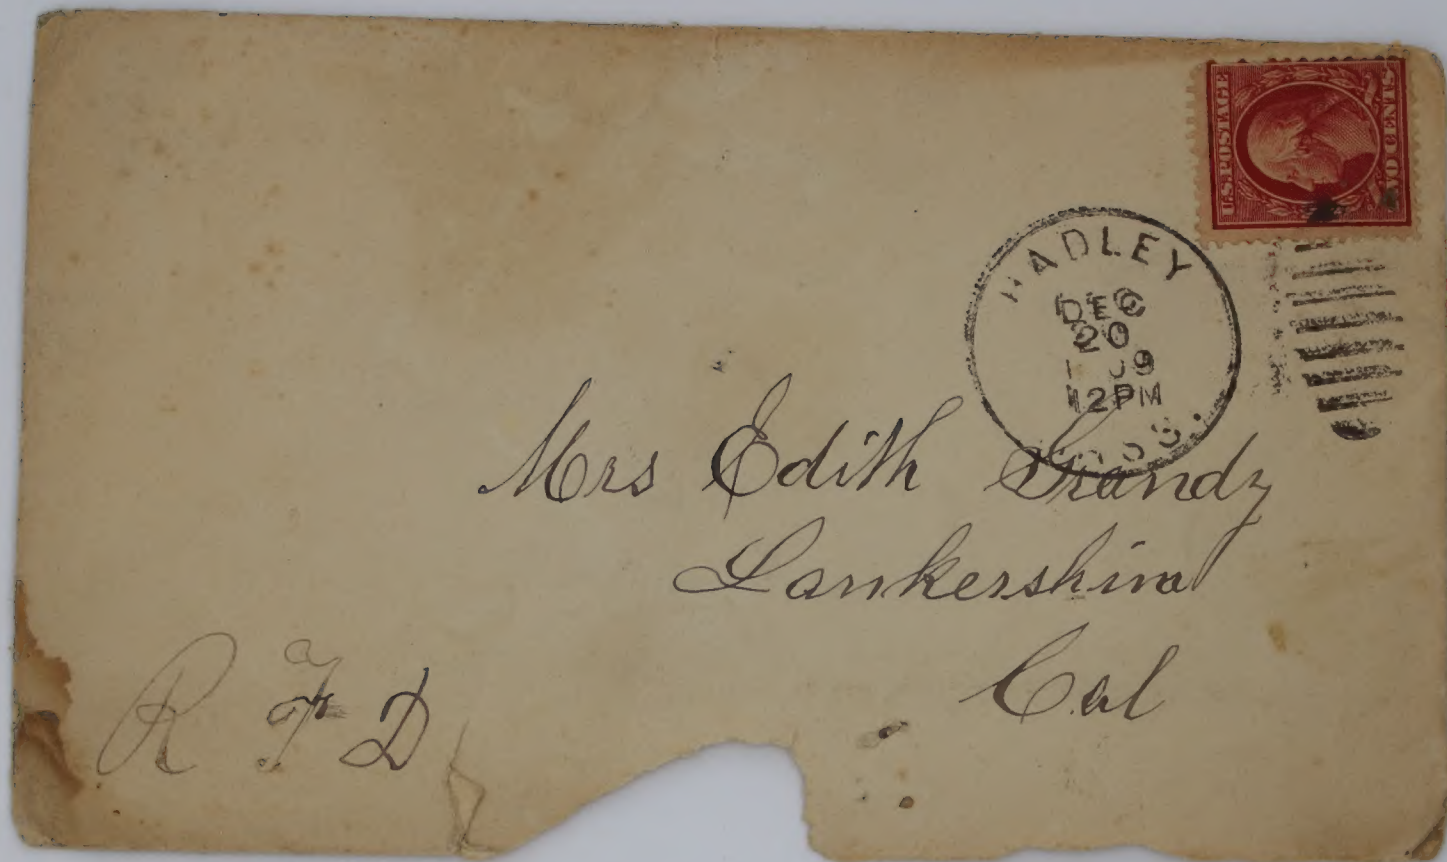 U.S. POSTAGE
TWO CENTS
HADLEY
DEC
20
12PM
Mrs Edith Grandy
Lankershim
Cal
R F D